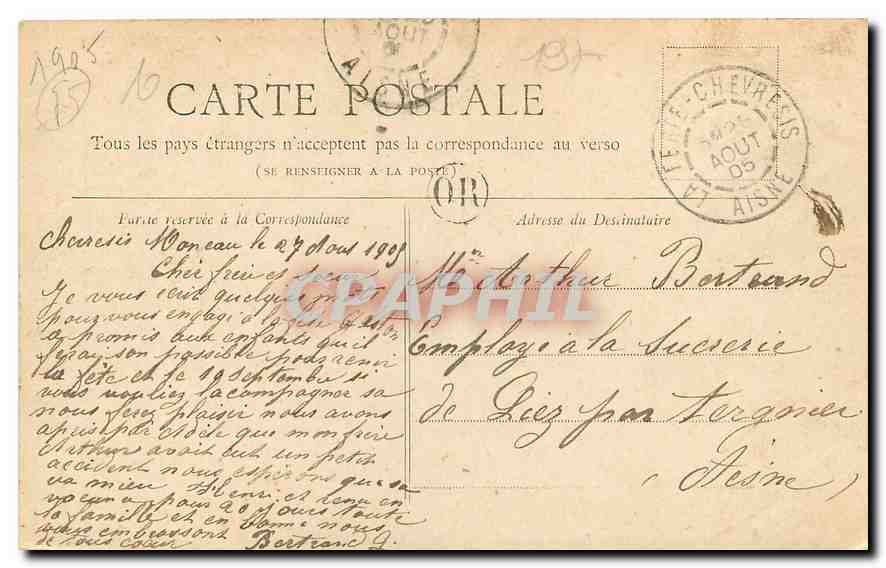 1905
AOUT
AISNE
CARTE POSTALE
Tous les pays étrangers n'acceptent pas la correspondance au verso
(SE RENSEIGNER A LA POSTE)
OR
LA FERTE-CHEVRESIS
AOUT
05
AISNE
Partie réservée à la Correspondance
Adresse du Destinataire
Monceau le 27 Aout 1905
Cher frère et
Je vous ecrit quelques mots
pour vous engagé à la
a promis aux enfants qu'il
feray son possible pour venir
la fête et le 10 septembre si
vous vouliez la compagner sa
nous ferez plaisir nous avons
apris par Adèle que mon frère
Arthur avait eut un petit
accident nous espérons que sa
va mieu Henri et venu en
pour 20 jours toute
la famille et en bonne nous
vous embrassont
de tous coeur Bertrand G.
Mr Arthur Bertrand
Employé à la Sucrerie
de Liez par Tergnier
(Aisne)
CPAPHIL